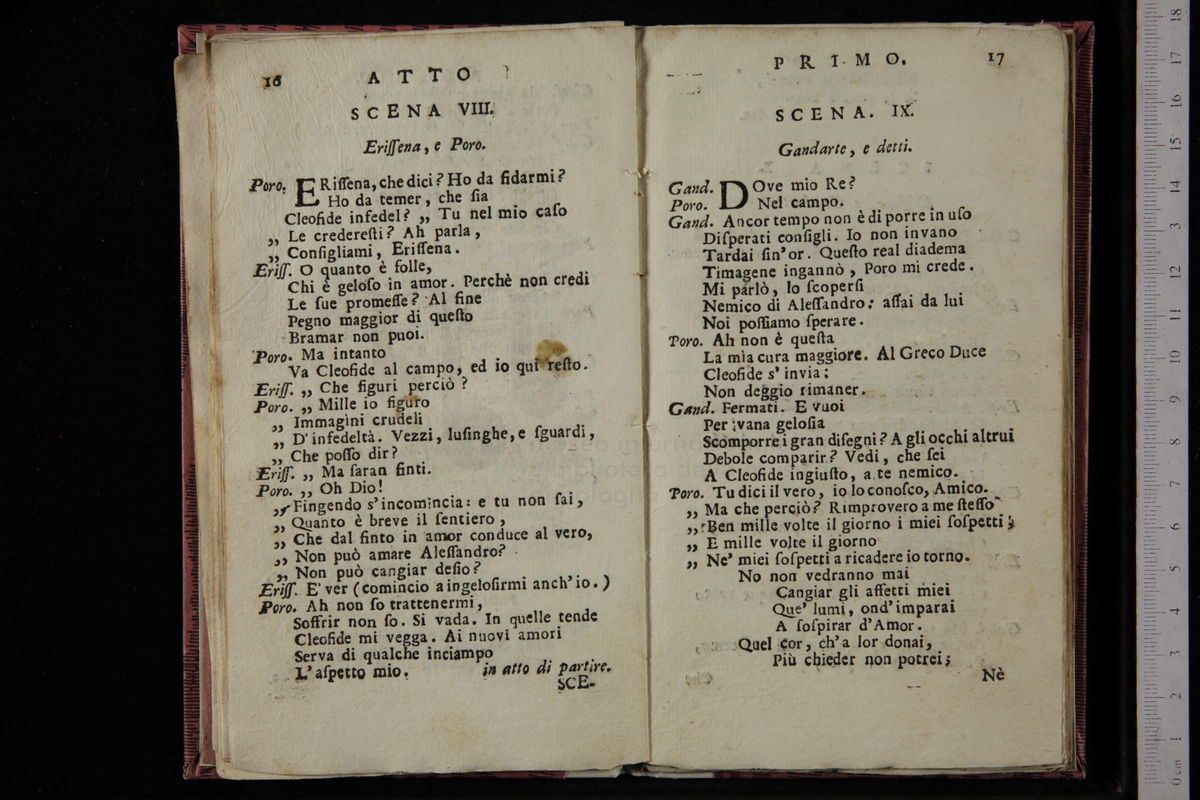 16 ATTO
SCENA VIII.
Eriſſena, e Poro.
Poro. ERiſſena, che dici? Ho da fidarmi?
Ho da temer, che ſia
Cleofide infedel? „ Tu nel mio caſo
„ Le crederеſti? Ah parla,
„ Conſigliami, Eriſſena.
Eriſſ. O quanto è folle,
Chi è geloſo in amor. Perchè non credi
Le ſue promeſſe? Al fine
Pegno maggior di queſto
Bramar non puoi.
Poro. Ma intanto
Va Cleofide al campo, ed io qui reſto.
Eriſſ. „ Che figuri perciò?
Poro. „ Mille io figuro
„ Immagini crudeli
„ D'infedeltà. Vezzi, luſinghe, e ſguardi,
„ Che poſſo dir?
Eriſſ. „ Ma ſaran finti.
Poro. „ Oh Dio!
„ Fingendo s'incomincia: e tu non ſai,
„ Quanto è breve il ſentiero,
„ Che dal finto in amor conduce al vero,
„ Non può amare Aleſſandro?
„ Non può cangiar deſio?
Eriſſ. E' ver (comincio a ingeloſirmi anch'io.)
Poro. Ah non ſo trattenermi,
Soffrir non ſo. Si vada. In quelle tende
Cleofide mi vegga. Ai nuovi amori
Serva di qualche inciampo
L'aſpetto mio. in atto di partire.
SCE-
PRIMO. 17
SCENA. IX.
Gandarte, e detti.
Gand. DOve mio Re?
Poro. Nel campo.
Gand. Ancor tempo non è di porre in uſo
Diſperati conſigli. Io non invano
Tardai ſin'or. Queſto real diadema
Timagene ingannò, Poro mi crede.
Mi parlò, lo ſcoperſi
Nemico di Aleſſandro: aſſai da lui
Noi poſſiamo ſperare.
Poro. Ah non è queſta
La mia cura maggiore. Al Greco Duce
Cleofide s'invia:
Non deggio rimaner.
Gand. Fermati. E vuoi
Per vana geloſia
Scomporre i gran diſegni? A gli occhi altrui
Debole comparir? Vedi, che ſei
A Cleofide ingiuſto, a te nemico.
Poro. Tu dici il vero, io lo conoſco, Amico.
„ Ma che perciò? Rimprovero a me ſteſſo
„ Ben mille volte il giorno i miei ſoſpetti;
„ E mille volte il giorno
„ Ne' miei ſoſpetti a ricadere io torno.
No non vedranno mai
Cangiar gli affetti miei
Que' lumi, ond'imparai
A ſoſpirar d'Amor.
Quel cor, ch'a lor donai,
Più chieder non potrei;
Nè